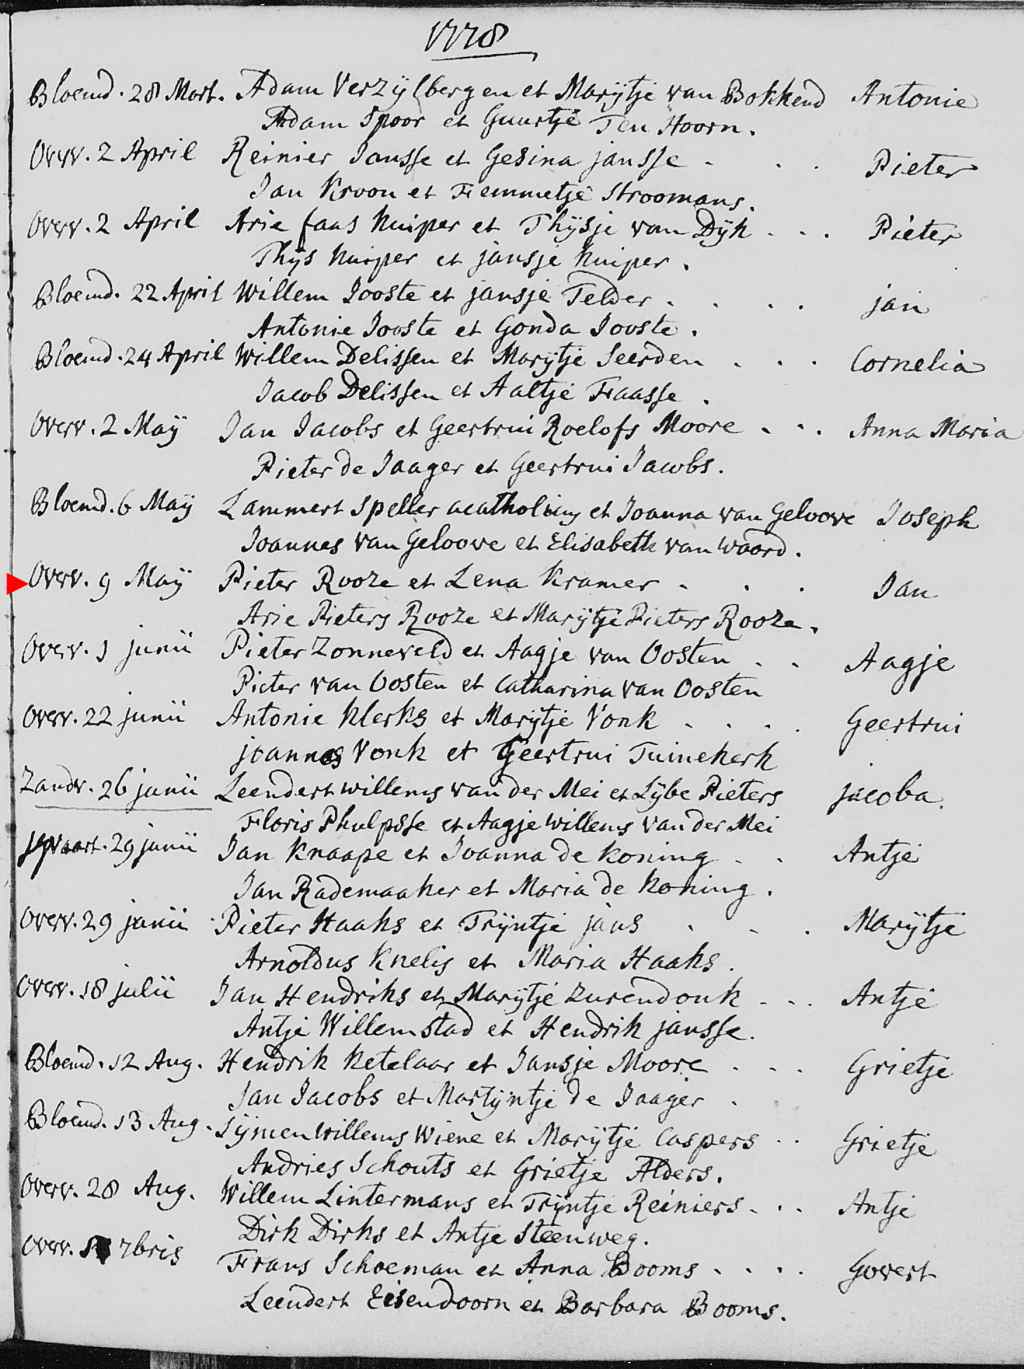 1778
Bloemd. 28 Mart. Adam Verzijlbergen et Marijtje van Bokkend Antonie
Adam Spoor et Guurtje Ten Hoorn.
Overv. 2 April Reinier Jansse et Gesina jansse - . . Pieter
Jan Kroon et Femmetje Stroomans.
Overv. 2 April Arie faas Kuiper et Thijsje van Dijk . . . Pieter
Thijs Kuiper et jansje Kuiper.
Bloemd. 22 April Willem Jooste et jansje Telder . . . . jan
Antonie Jooste et Gonda Jooste.
Bloemd. 24 April Willem Delissen et Marijtje Seerden . . . Cornelia
Jacob Delissen et Aaltje Fraasse.
Overv. 2 Maij Jan Jacobs et Geertrui Roelofs Moore . . . Anna Maria
Pieter de Jaager et Geertrui Jacobs.
Bloemd. 6 Maij Lammert Speller acatholicus et Joanna van Geloove Joseph
Joannes van Geloove et Elisabeth van Woord.
Overv. 9 Maij Pieter Rooze et Lena Kramer . . . Jan
Arie Pieters Rooze et Marijtje Pieters Rooze.
Overv. 1 junii Pieter Zonneveld et Aagje van Oosten . . Aagje
Pieter van Oosten et Catharina van Oosten
Overv. 22 junii Antonie Klerks et Marijtje Vonk . . . Geertrui
joannes Vonk et Geertrui Tuinekerk
Zandv. 26 junii Leendert willems van der Mei et Lijbe Pieters jacoba.
Floris Phulpsse et Aagje Willems van der Mei
29 junii Jan Knaape et Joanna de Koning . . Antje
Jan Rademaaker et Maria de Koning.
Overv. 29 junii Pieter Haaks et Trijntje jans . . . Marijtje
Arnoldus Knelis et Maria Haaks.
Overv. 18 julii Jan Hendriks et Marijtje Zurendonk . . . Antje
Antje Willemstad et Hendrik jansse.
Bloemd. 12 Aug. Hendrik Ketelaar et Jansje Moore . . . Grietje
Jan Jacobs et Martijntje de Jaager.
Bloemd. 13 Aug. Sijmen Willems Wiene et Marijtje Caspers . . Grietje
Andries Schouts et Grietje Alders.
Overv. 28 Aug. Willem Lintermans et Trijntje Reiniers . . . Antje
Dirk Dirks et Antje Steenweg.
Overv. 7bris Frans Schoeman et Anna Booms . . . . Govert
Leendert Eisendoorn et Barbara Booms.